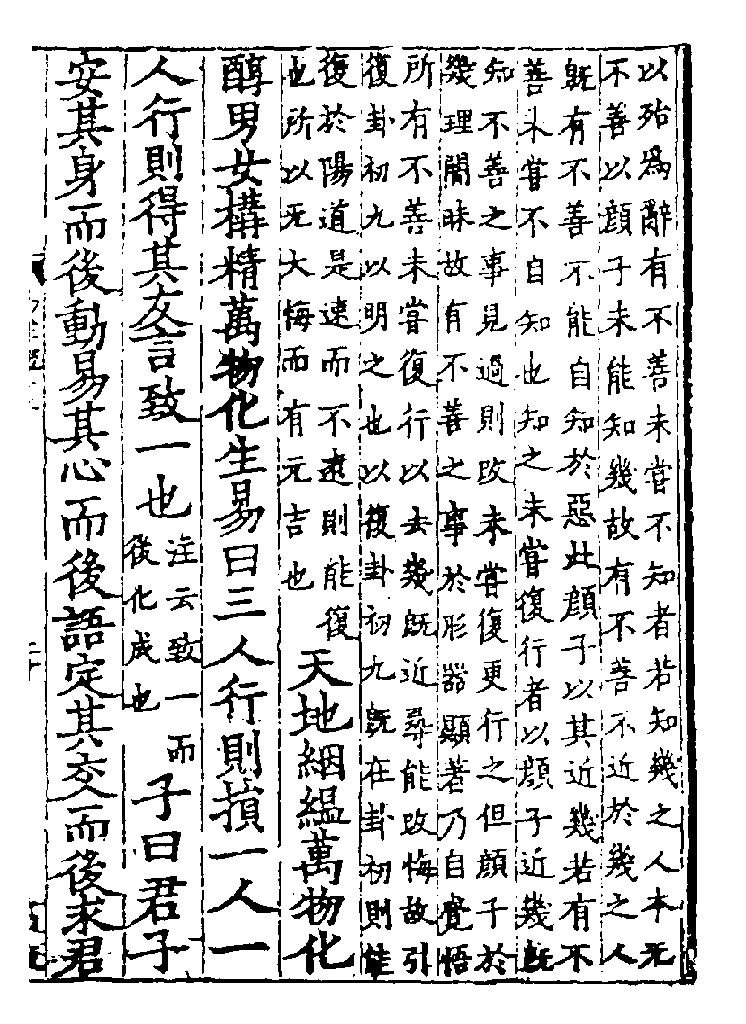 以殆爲辭有不善未嘗不知者若知幾之人本无
不善以顔子未能知幾故有不善不近於幾之人
旣有不善不能自知於惡此顔子以其近幾若有不
善未嘗不自知也知之未嘗復行者以顔子近幾旣
知不善之事見過則改未嘗復更行之但顔子於
幾理闇昧故有不善之事於形器顯著乃自覺悟
所有不善未嘗復行以去幾旣近尋能改悔故引
復卦初九以明之也以復卦初九旣在卦初則能
復於陽道是速而不遠則能復
也所以无大悔而有元吉也
天地絪縕萬物化
醇男女構精萬物化生易曰三人行則損一人一
人行則得其友言致一也
注云致一而
後化成也
子曰君子
安其身而後動易其心而後語定其交而後求君